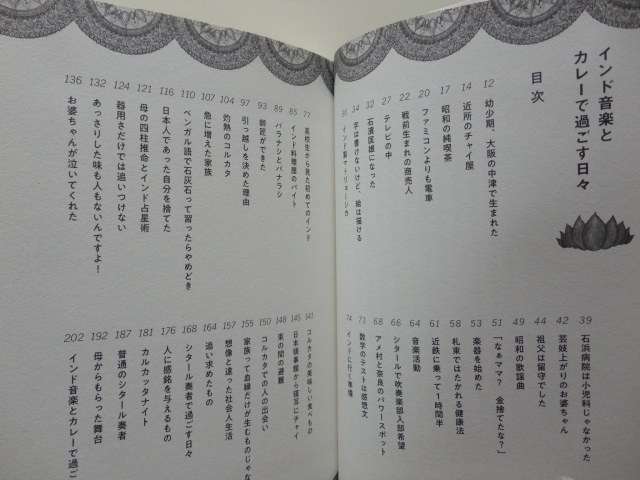 インド音楽と
カレーで過ごす日々
目次
12 幼少期、大阪の中津で生まれた
14 近所のチャイ屋
17 昭和の純喫茶
20 ファミコンよりも電車
22 戦前生まれの商売人
27 テレビの中
32 石濱匡雄になった
34 字は書けないけど、絵は描ける
36 インド製マトリョーシカ
39 石浜病院は小児科じゃなかった
42 芸妓上がりのお婆ちゃん
44 祖父は留守でした
49 昭和の歌謡曲
51 「なぁママ? 金捨てたな?」
53 楽器を始めた
58 札束ではたかれる健康法
61 近鉄に乗って1時間半
64 音楽活動
66 シタールで吹奏楽部入部希望
68 アメ村と奈良のパワースポット
71 数学のテストは感想文
74 インドに行く準備
77 高校生から見た初めてのインド
85 インド料理屋のバイト
89 バラナシとバナラシ
93 師匠ができた
97 引っ越しを決めた理由
104 灼熱のコルカタ
107 急に増えた家族
110 ベンガル語で石灰石って習ったらやめどき
116 日本人であった自分を捨てた
121 母の四柱推命とインド占星術
124 器用さだけでは追いつけない
132 あっさりした味も人もないんですよ!
136 お婆ちゃんが泣いてくれた
141 コルカタの美味しい食べもの
145 日本領事館から寝耳にチャイ
148 束の間の避難
150 コルカタでの人の出会い
155 家族って血縁だけが生むものじゃな
157 想像と違った社会人生活
164 追い求めたもの
168 シタール奏者で過ごす日々
176 人に感銘を与えるもの
181 カルカッタナイト
187 普通のシタール奏者
192 母からもらった舞台
202 インド音楽とカレーで過ご